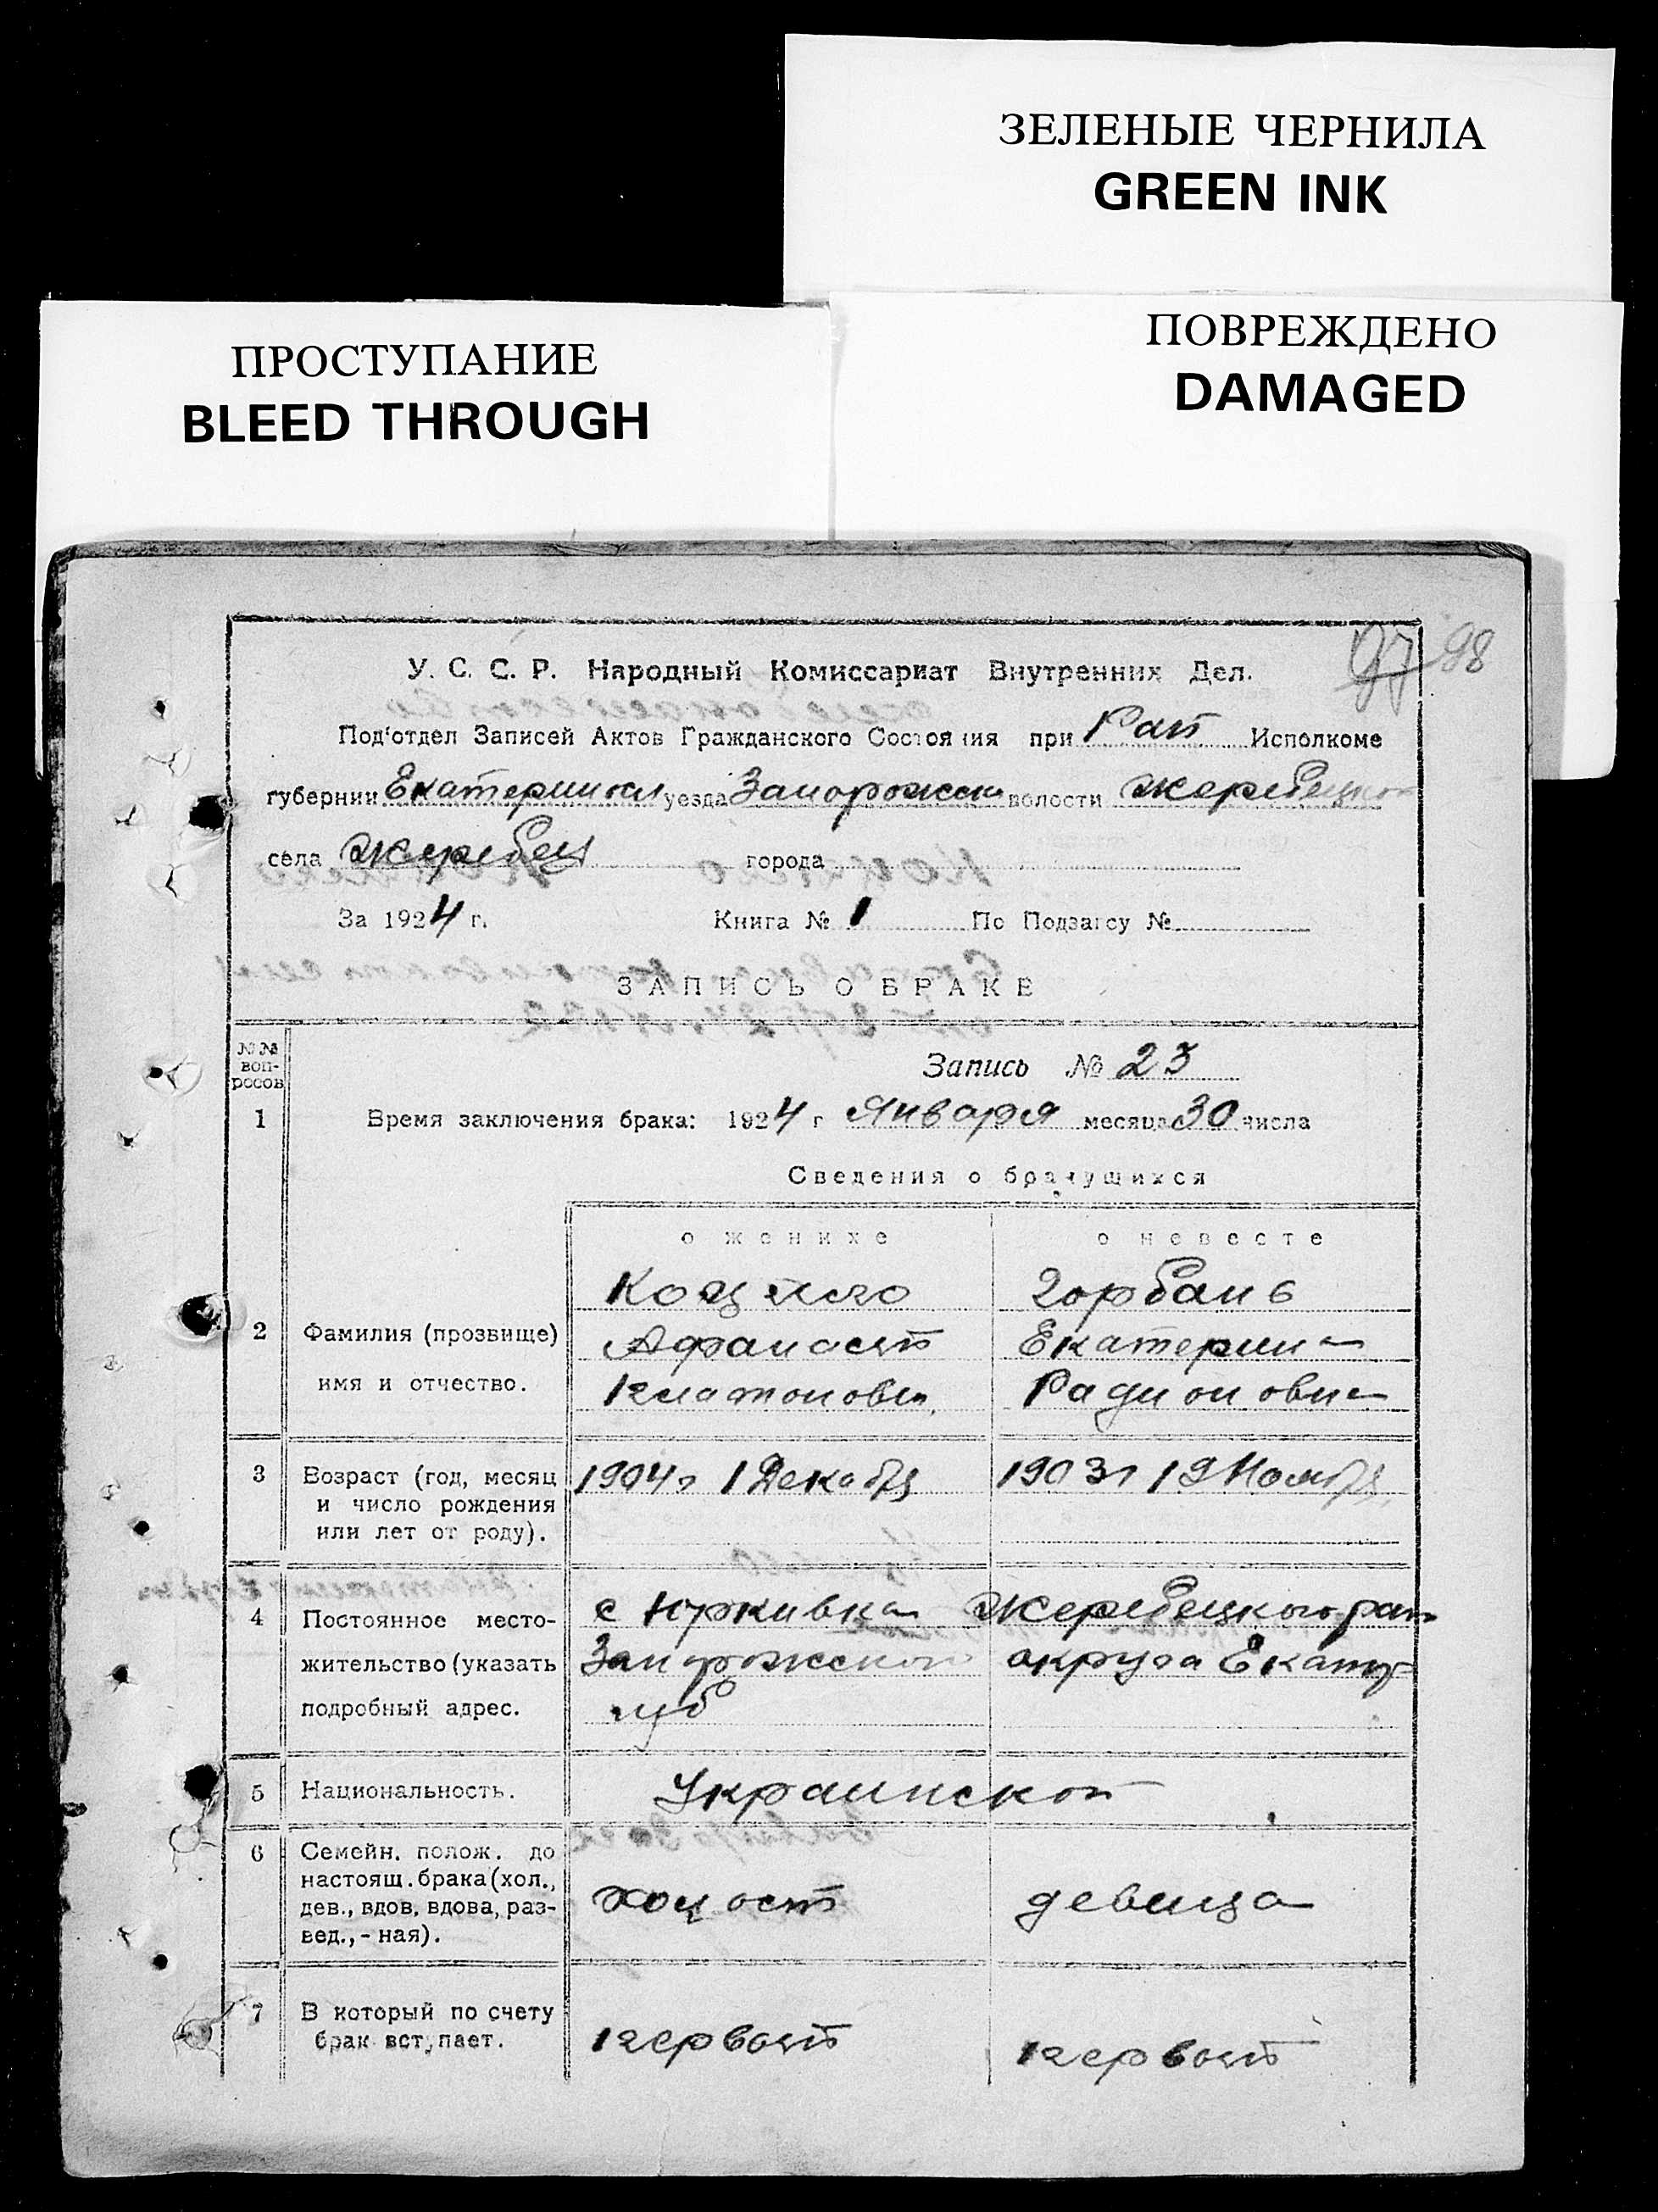 ЗЕЛЕНЫЕ ЧЕРНИЛА
GREEN INK
ПРОСТУПАНИЕ
BLEED THROUGH
ПОВРЕЖДЕНО
DAMAGED
97 98
У. С. С. Р. Народный Комиссариат Внутренних Дел.
Под'отдел Записей Актов Гражданского Состояния при Рай Исполкоме
губернии Екатериносл уезда Запорожск волости Жеребецкой
села Жеребец города
За 1924 г. Книга № 1 По Подзагсу №
ЗАПИСЬ О БРАКЕ
№№ вопросов
Запись № 23
1 Время заключения брака: 1924 г Января месяца 30 числа
Сведения о брачущихся
о женихе о невесте
Горбань
2 Фамилия (прозвище) Афанасий Екатерина
имя и отчество. Платонович Радионовна
3 Возраст (год, месяц 1904 г 1 Декабр 1903 г 19 Ноябр
и число рождения
или лет от роду).
4 Постоянное место- с Жеребецкого рай
жительство (указать Запорожской округа Екатер
подробный адрес. губ
5 Национальность. Украинской
6 Семейн. полож. до
настоящ. брака (хол., холост девица
дев., вдов, вдова, раз-
вед., - ная).
7 В который по счету первый первый
брак вступает.